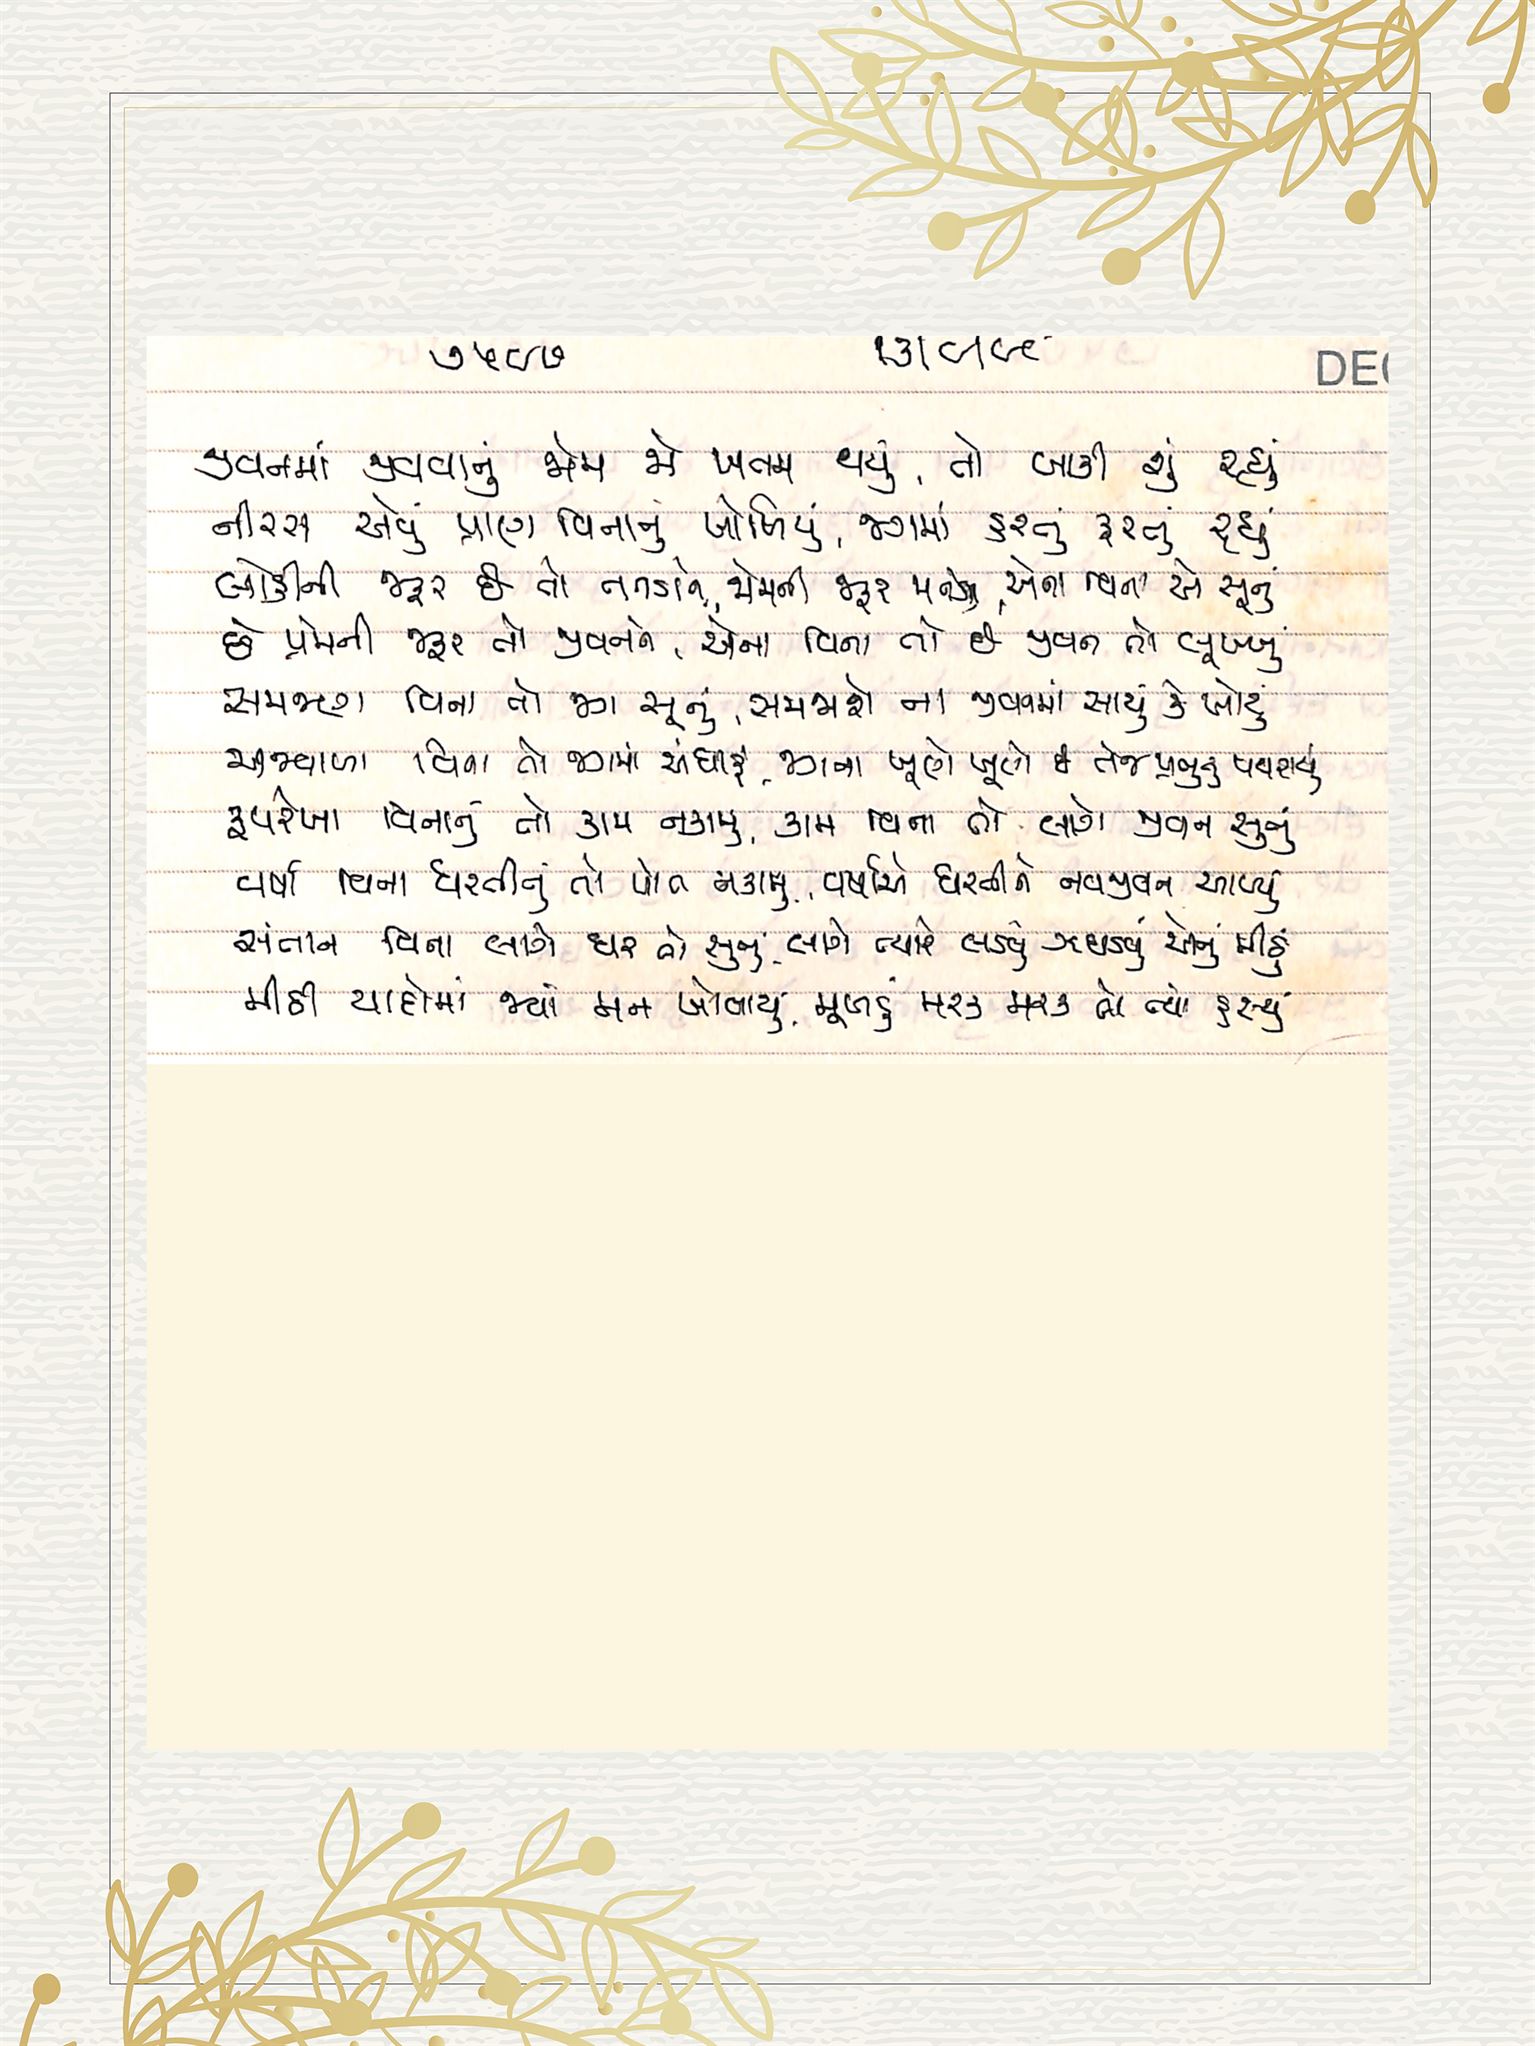 ૭૫૮૭ ૧૩।૮।૯૯
DEC
જીવનમાં જીવવાનું જોમ જો ખતમ થયું, તો બાકી શું રહ્યું
નીરસ એવું પ્રાણ વિનાનું ખોળિયું, જગમાં ફરતું ફરતું રહ્યું
લોહીની જરૂર છે તો તનડાંને, જોમની જરૂર મનને, એના વિના એ સૂનું
છે પ્રેમની જરૂર તો જીવનને, એના વિના તો છે જીવન તો લૂખ્ખું
સમજણ વિના તો જગ સૂનું, સમજાશે ના જીવનમાં સાચું કે ખોટું
અજવાળા વિના તો જગમાં અંધારું, જગના ખૂણે ખૂણે છે તેજ પ્રભુનું પથરાયું
રૂપરેખા વિનાનું તો કામ નકામું, કામ વિના તો લાગે જીવન સુનું
વર્ષા વિના ધરતીનું તો પોત નકામું, વર્ષાએ ધરતીને નવજીવન આપ્યું
સંતાન વિના લાગે ઘર તો સુનું, લાગે ત્યારે લડવું ઝઘડવું એનું મીઠું
મીઠી યાદોમાં જ્યાં મન ખોવાયું, મૂખડું મરક મરક તો ત્યાં હસ્યું